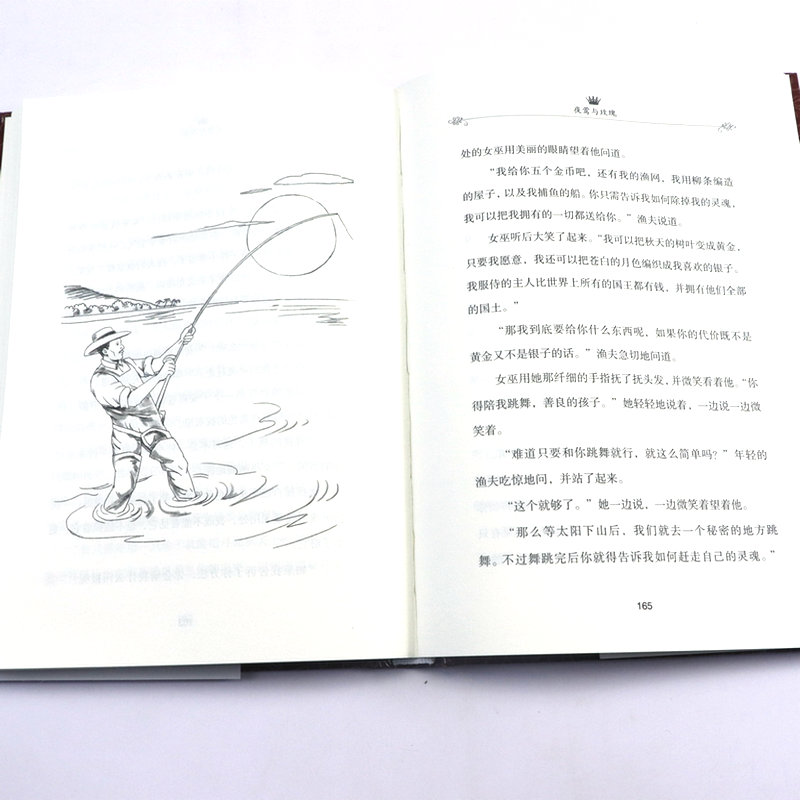 夜莺与玫瑰
处的女巫用美丽的眼睛望着他问道。
“我给你五个金币吧，还有我的渔网、我用柳条编造
的屋子，以及我捕鱼的船。你只需告诉我如何除掉我的灵魂，
我可以把我拥有的一切都送给你。”渔夫说道。
女巫听后大笑了起来。“我可以把秋天的树叶变成黄金，
只要我愿意，我还可以把苍白的月色编织成我喜欢的银子。
我服侍的主人比世界上所有的国王都有钱，并拥有他们全部
的国土。”
“那我到底要给你什么东西呢，如果你的代价既不是
黄金又不是银子的话。”渔夫急切地问道。
女巫用她那纤细的手指抚了抚头发，并微笑看着他。“你
得陪我跳舞，善良的孩子。”她轻轻地说着，一边说一边微
笑着。
“难道只要和你跳舞就行，就这么简单吗？”年轻的
渔夫吃惊地问，并站了起来。
“这个就够了。”她一边说，一边微笑着望着他。
“那么等太阳下山后，我们就去一个秘密的地方跳
舞。不过舞跳完后你就得告诉我如何赶走自己的灵魂。”
165